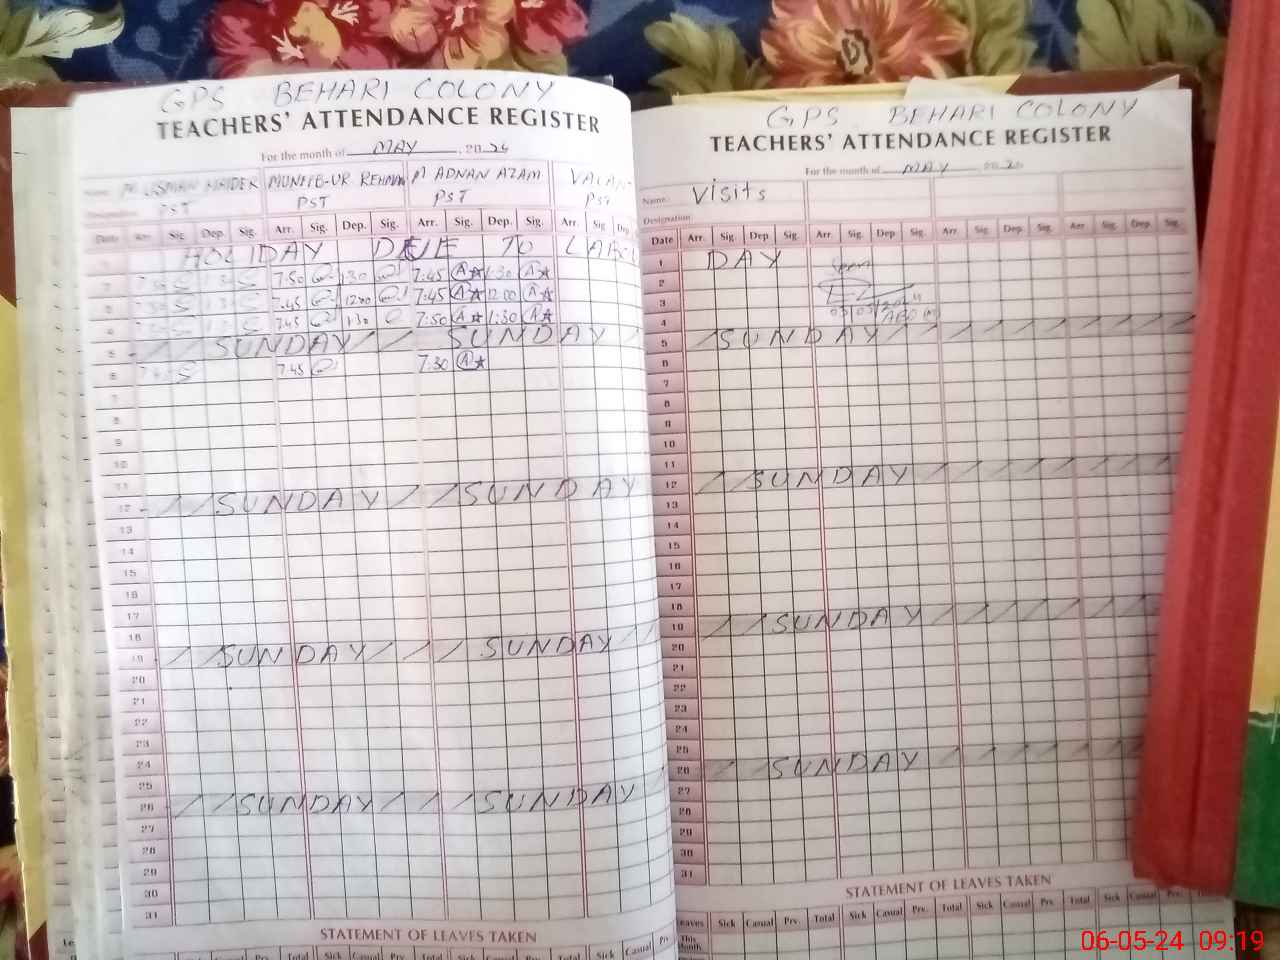 GPS BEHARI COLONY
TEACHERS' ATTENDANCE REGISTER
For the month of MAY, 2024
Name: M USMAN HAIDER MUNEEB-UR REHMAN M ADNAN AZAM VACAN
Designation PST PST PST PST
Date Arr. Sig. Dep. Sig. Arr. Sig. Dep. Sig. Arr. Sig. Dep. Sig. Arr. Sig Dep.
1 HOLIDAY DUE TO LABOU
2 7:50 1:30 7:45 1:30
3 7:45 12:00 7:45 12:00
4 7:45 1:30 7:50 1:30
5 SUNDAY SUNDAY
6 7:45 7:30
7
8
9
10
11
12 SUNDAY SUNDAY
13
14
15
16
17
18
19 SUNDAY SUNDAY
20
21
22
23
24
25
26 SUNDAY SUNDAY
27
28
29
30
31
STATEMENT OF LEAVES TAKEN
Total Sick Casual Prv. Total Sick Casual Prv. Total Sick Casual Prv.
GPS BEHARI COLONY
TEACHERS' ATTENDANCE REGISTER
For the month of MAY, 2024
Name: Visits
Designation
Date Arr. Sig. Dep. Sig. Arr. Sig. Dep Sig. Arr. Sig. Dep. Sig. Arr. Sig. Dep. Sig.
1 DAY
2 Seen
3
4
5 SUNDAY
6
7
8
9
10
11
12 SUNDAY
13
14
15
16
17
18
19 SUNDAY
20
21
22
23
24
25
26 SUNDAY
27
28
29
30
31
STATEMENT OF LEAVES TAKEN
Leaves Sick Casual Prv. Total Sick Casual Prv. Total Sick Casual Prv. Total Sick Casual Prv. Total
This Month
06-05-24 09:19